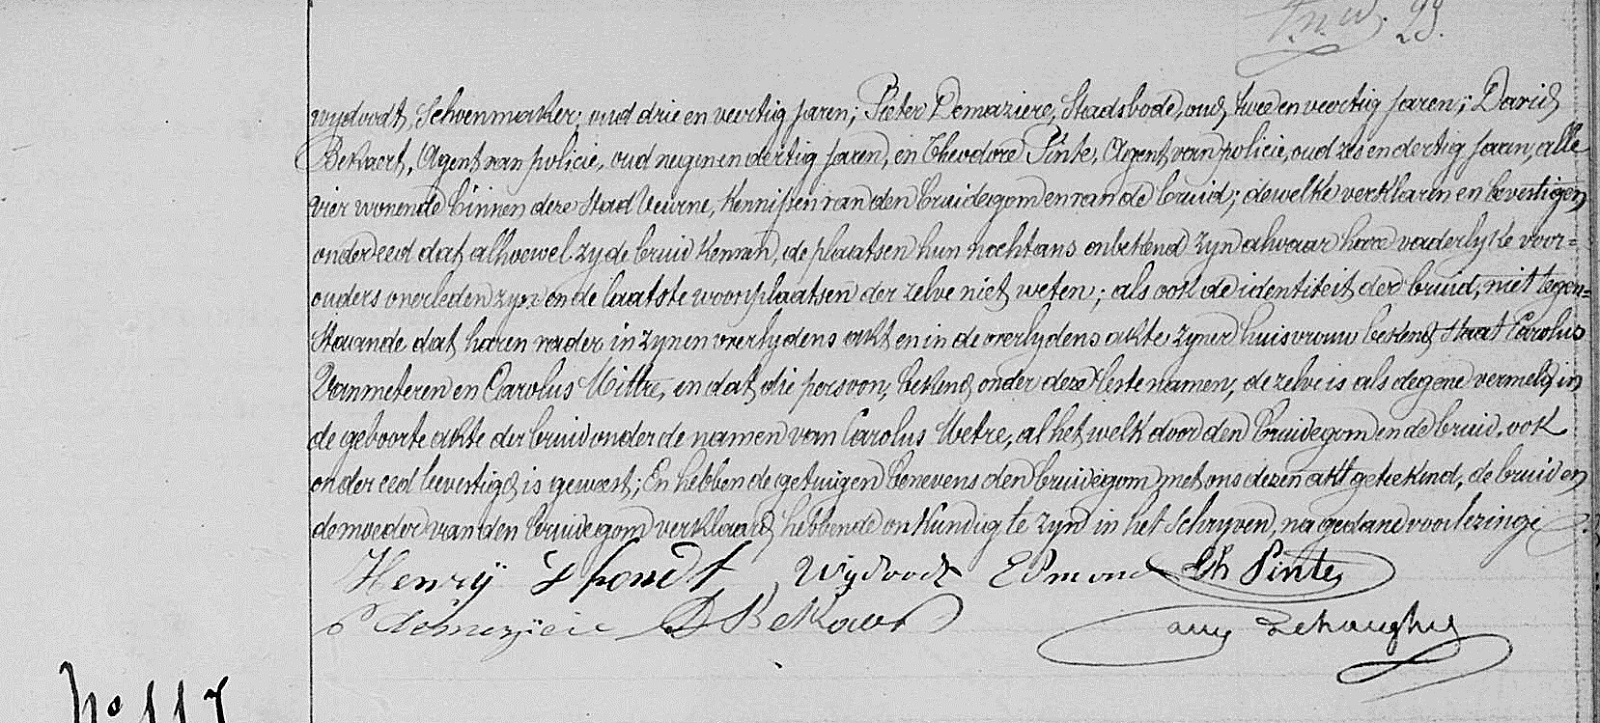 23.
wydoodt, Schoenmaker, oud drie en veertig jaren; Pieter Demaziere, Stadsbode, oud twee en veertig jaren; David
Bekaert, Agent van policie, oud negen en dertig jaren, en Theodore Pinte, Agent van policie, oud zes en dertig jaren, alle
vier wonende binnen deze Stad Veurne, kennissen van den bruidegom en van de bruid; dewelke verklaren en bevestigen
onder eed dat alhoewel zy de bruid kennen, de plaatsen hun nochtans onbekend zyn alwaar hare vaderlyke voor=
ouders overleden zyn en de laatste woonplaatsen der zelve niet weten; als ook de identiteit der bruid, niet tegen=
staande dat haren vader in zynen overlydens akt en in de overlydens akte zyner huisvrouw bekend staat Carolus
Vanmeteren en Carolus Mittre, en dat die persoon, bekend onder deze leste namen, de zelve is als degene vermeld in
de geboorte akte der bruid onder de namen van Carolus Metre, al het welk door den bruidegom en de bruid, ook
onder eed bevestigd is geweest; En hebben de getuigen benevens den bruidegom met ons dezen akt geteekend, de bruid en
de moeder van den bruidegom verklaard hebbende onkundig te zyn in het schryven, na gedane voorlezinge
Henry D'hondt Wydoodt Edmond Th Pinte
P Demaziere D Bekaert
N° 117